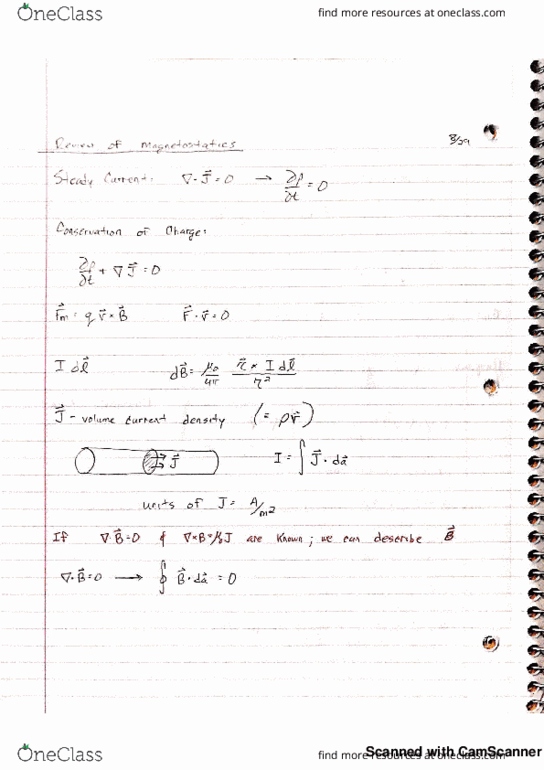 OneClass find more resources at oneclass.com
Review of Magnetostatics 8/29
Steady Current: ∇·J⃗=0 → ∂ρ/∂t=0
Conservation of Charge:
∂ρ/∂t + ∇J⃗=0
F⃗m = q v⃗×B⃗ F⃗·v⃗=0
I dl⃗ dB⃗= μ0/4π r⃗ × I dl⃗/r²
J⃗ - volume current density (= ρv⃗)
J⃗ I = ∫ J⃗·da⃗
units of J = A/m²
If ∇·B⃗=0 & ∇×B=μ0J are known; we can describe B⃗
∇·B⃗=0 → ∮ B⃗·da⃗ = 0
Scanned with CamScanner
OneClass find more resources at oneclass.com